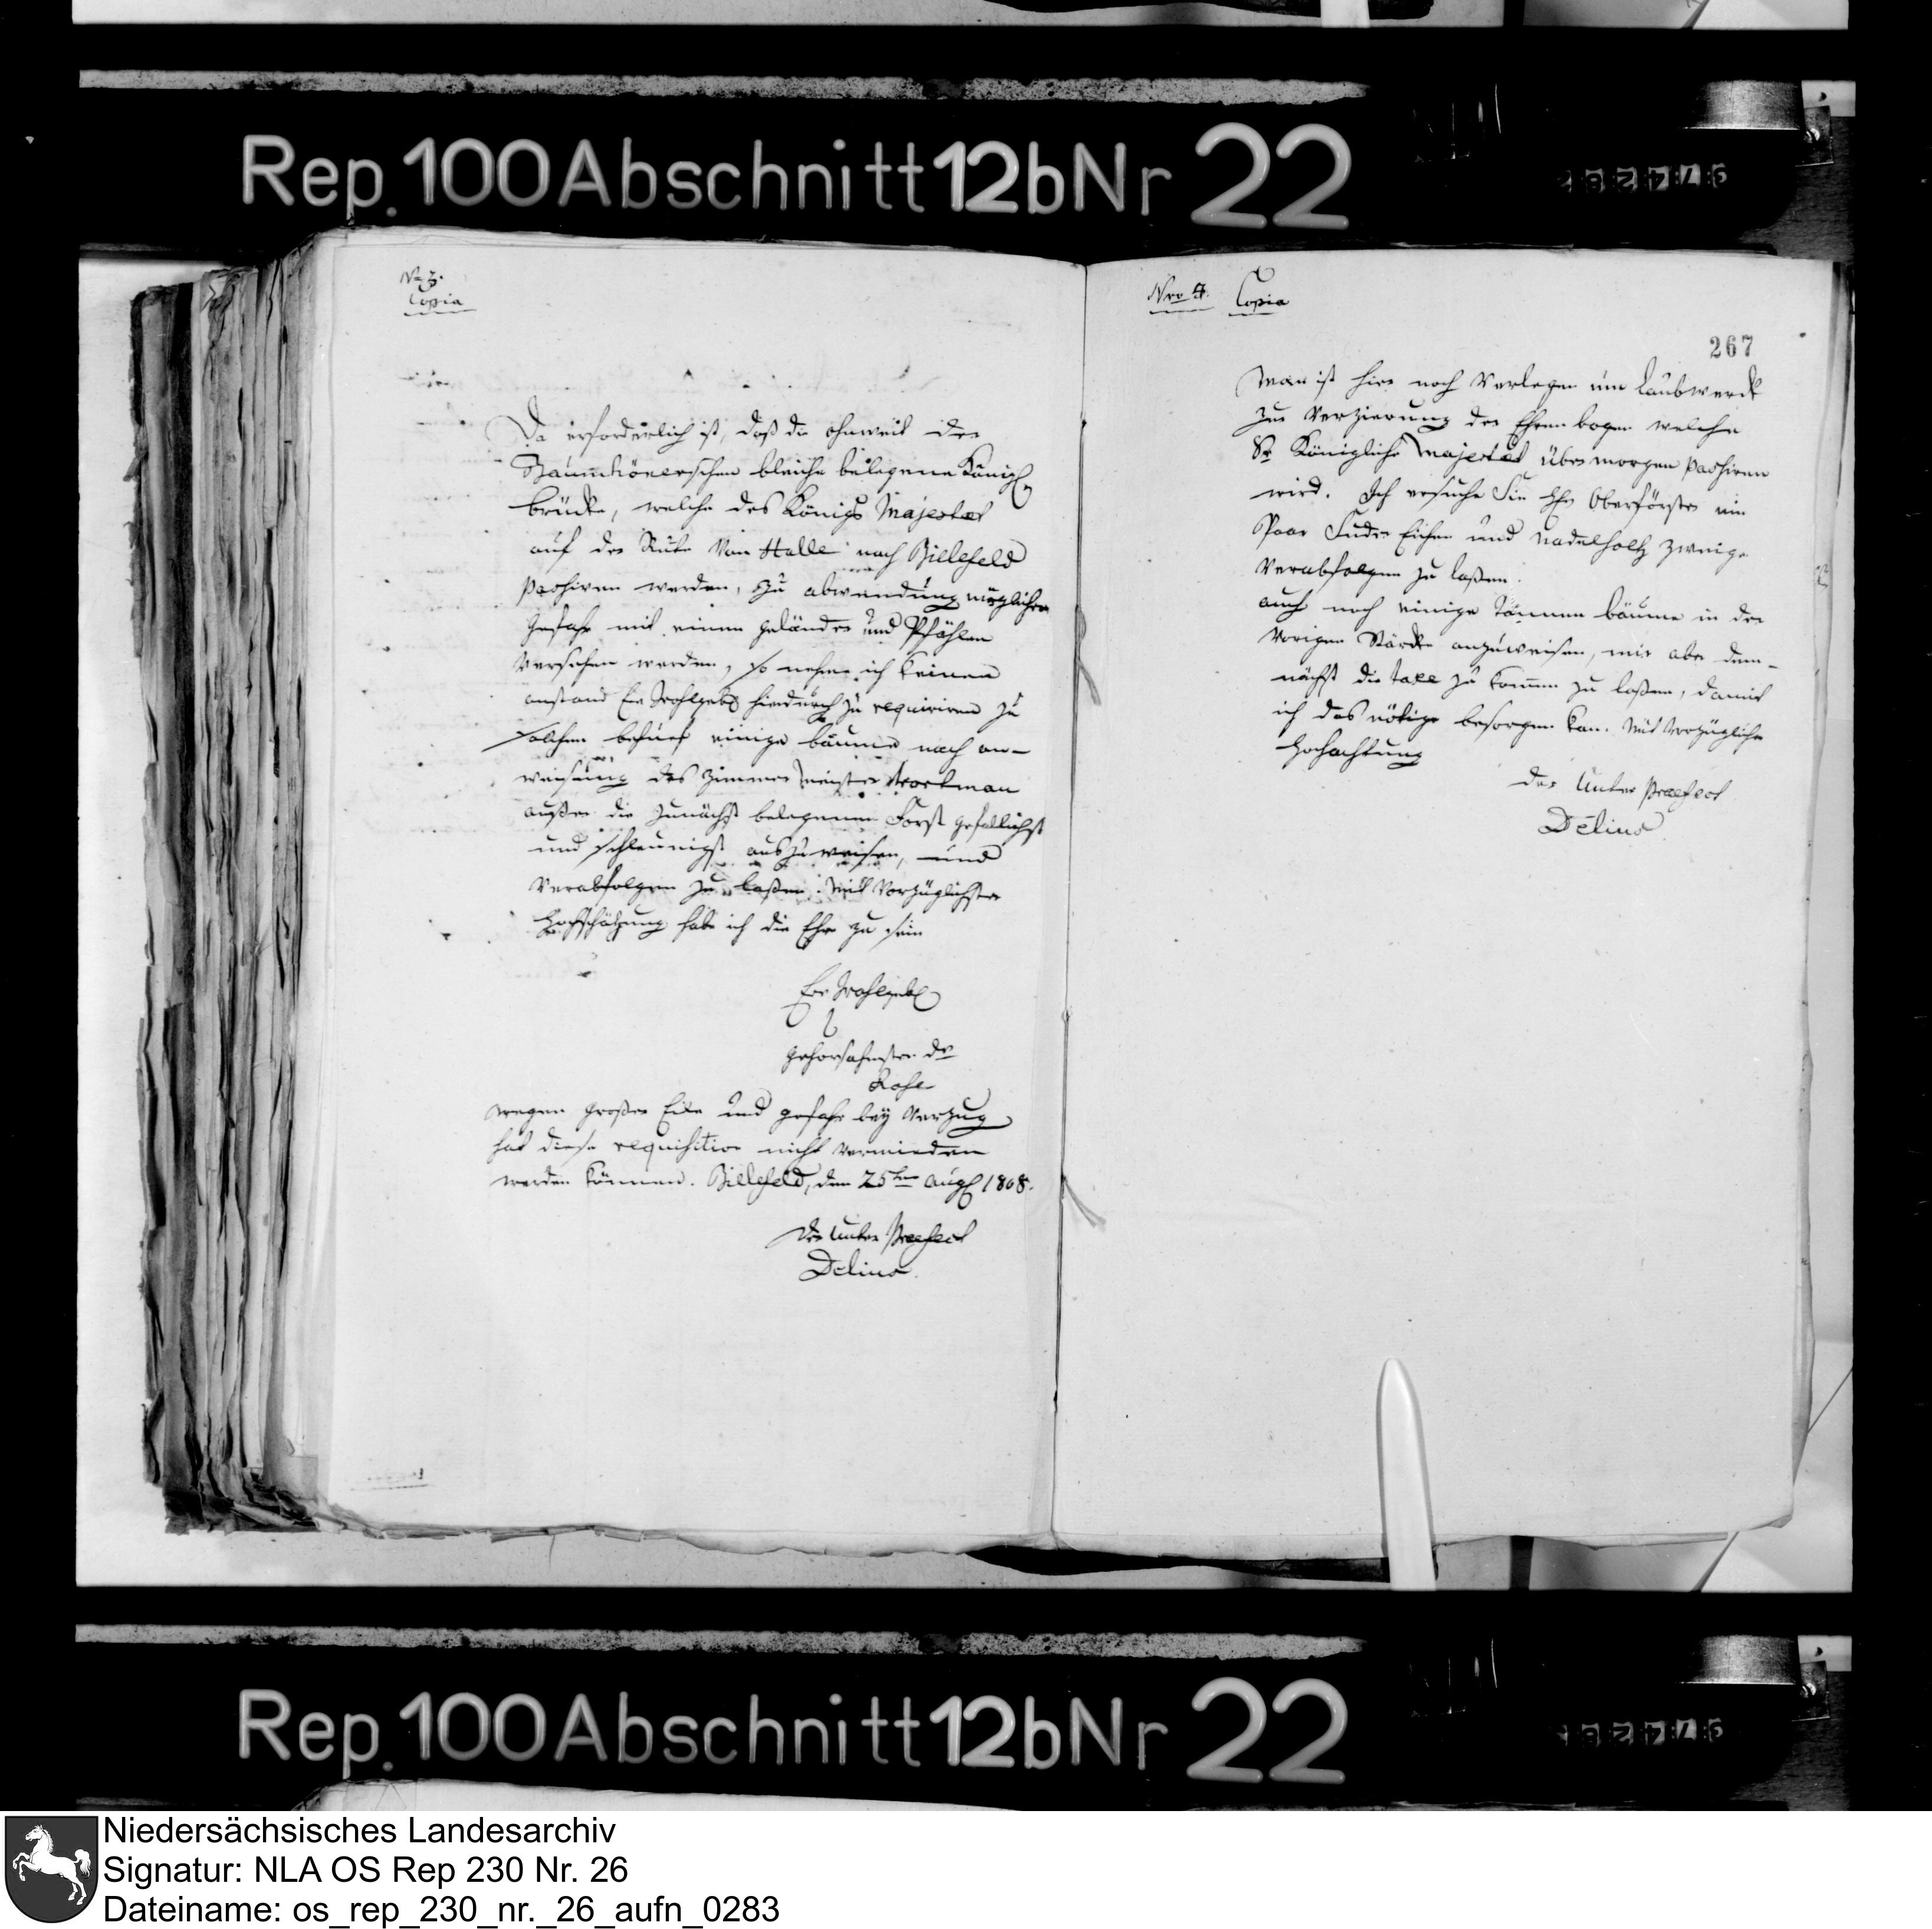 Rep. 100 Abschnitt 12b Nr 22
No 3.
Copia
Da erforderlich ist, daß die ohnweit der
Baumhönerschen bleiche belegene Königl
brücke, welche des Königs Majestät
auf der Rute von Halle nach Bielefeld
paßiren werden, zu abwendung möglicher
Gefahr mit einem geländer und Pfählen
versehen werden, so nehme ich keinen
anstand Ew Wohlgeb hierdurch zu requiriren zu
solchem behuef einige bäume nach an-
weisung des Zimmer meister
außer die zunächst belegenen Forst gefälligst
und schleunigst auszuweisen, und
verabfolgen zu laßen. Mit vorzüglichster
Hochschätzung habe ich die Ehre zu sein
Ew Wohlgeb
gehorsamster dr
Rose
wegen großer Eile und gefahr bey Verzug
hat diese requisition nicht vermieden
werden können. Bielefeld, den 25ten Augl 1808.
der Unter Praefect
Delius.
Nro 4. Copia
267
Man ist hier noch verlegen um Laubwerck
zur Verzierung der Ehrenbogen welche
Se Königliche Majestät übermorgen paßiren
wird. Ich ersuche Sie Hr Oberförster ein
Paar Fuder Eichen und Nadelholtz zweige
verabfolgen zu laßen.
auch noch einige Tannen bäume in der
vorigen Stärcke anzuweisen, mir aber dem-
nächst die taxe zu kommen zu laßen, damit
ich das nötige besorgen kan. Mit vorzüglicher
Hochachtung
der Unter Praefect
Delius
Rep. 100 Abschnitt 12b Nr 22
Niedersächsisches Landesarchiv
Signatur: NLA OS Rep 230 Nr. 26
Dateiname: os_rep_230_nr._26_aufn_0283